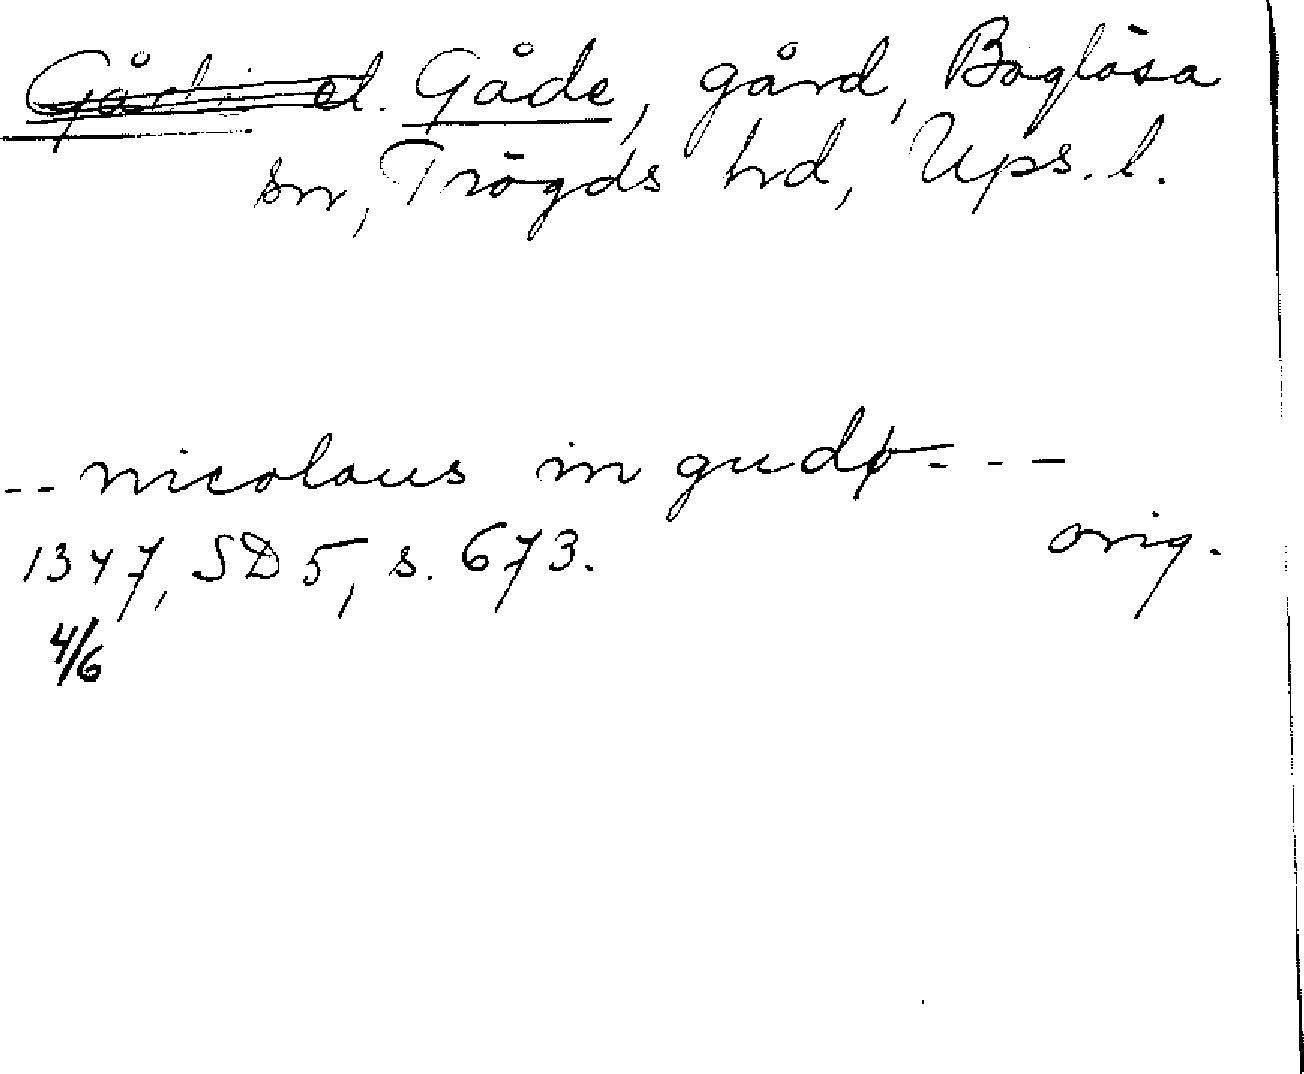 el. Gåde, gård, Boglösa
sn, Trögds hd, Ups. l.
-- nicolaus in gudø - - -
1347, SD 5, s. 673. orig.
4/6